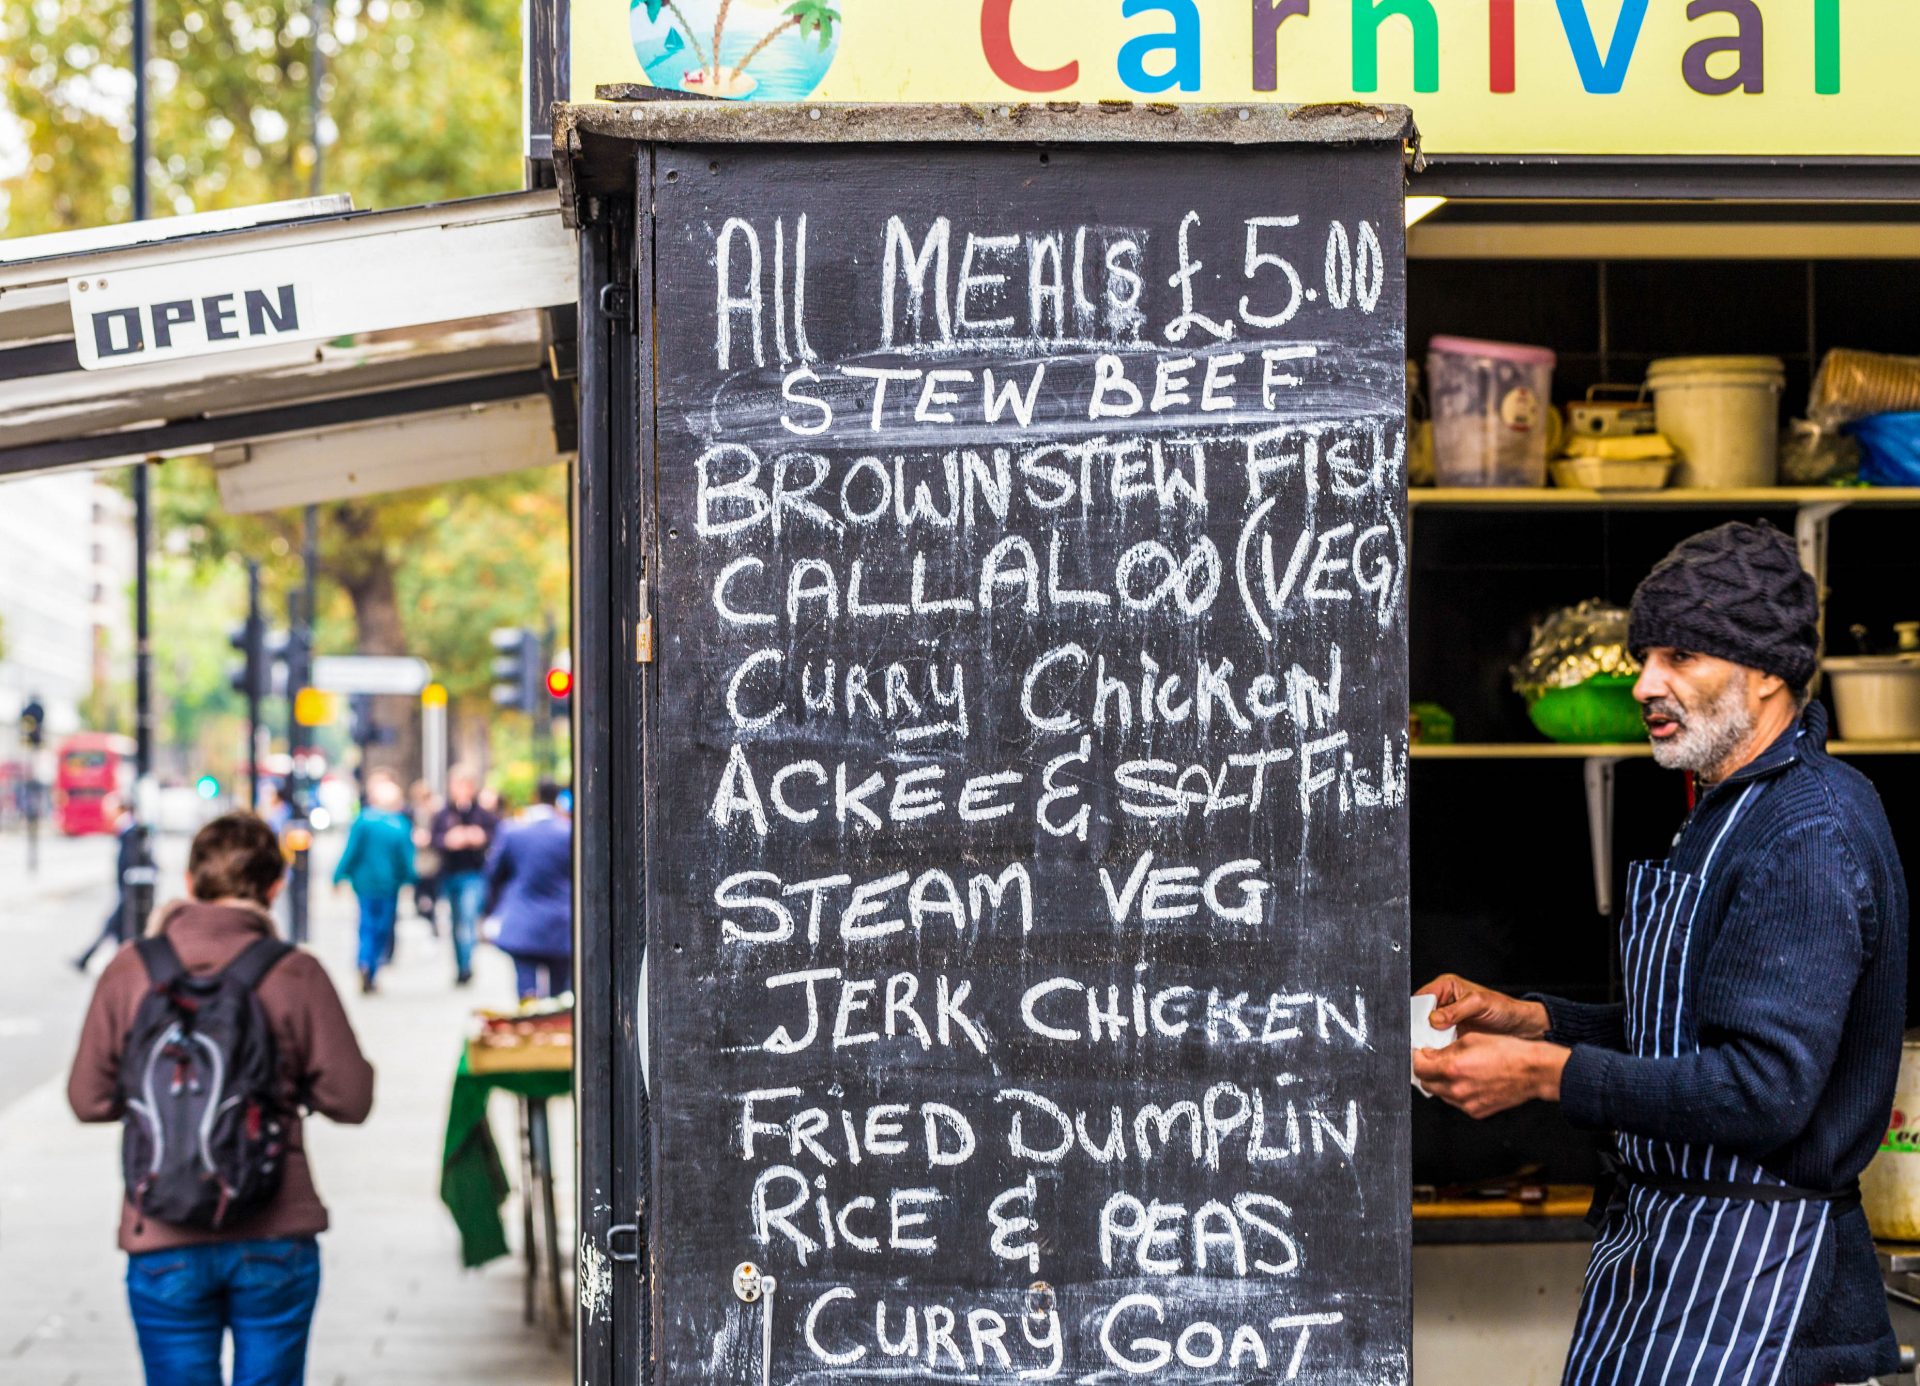 Carnival
OPEN
All MEAlS £5.00
STEW BEEF
BROWN STEW FISH
CALLALOO (VEG)
CURRY ChicKeN
ACKEE & SALT FISH
STEAM VEG
JERK CHiCKEN
FRiED DUMPLiN
RiCE & PEAS
CURRY GOAT